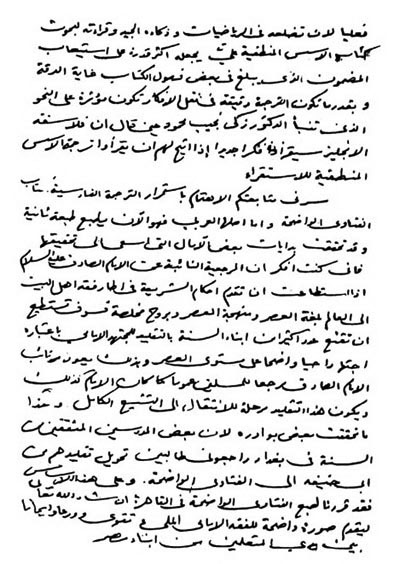 فعليا لان تضلعه في الرياضيات وذكاءه الجيد وقراءته لبحوث
كتاب الاسس المنطقية عليّ يجعله اكثر قدرة على استيعاب
المضمون الذي يبلغ في بعض فصول الكتاب غاية الدقة
وبقدر ما تكون الترجمة دقيقة في نقل الأفكار تكون مؤثرة على النحو
الذي تنبأ الدكتور زكي نجيب محمود حين قال ان فلاسفة
الانجليز سيقرأون فكرا جديدا إذا اتيح لهم ان يقرأوا ترجمة الاسس
المنطقية للاستقراء
سرني متابعتكم الاهتمام باستمرار الترجمة الفارسية لكتاب
الفتاوى الواضحة واما اصله العربي فهو الآن يطبع طبعة ثانية
وقد تحققت بدايات بعض الآمال التي اسعى الى تحقيقها
فاني كنت افكر ان المرجعية النائبة عن الامام الصادق عليه السلام
اذا استطاعت ان تقدم احكام الشريعة في اطار فقه اهل البيت
الى العالم بلغة العصر ومنهجية العصر وبروح مخلصة فسوف تستطيع
ان تقنع عددا كبيرا من ابناء السنة بالتقليد للمجتهد الامامي باعتباره
اجتهادا حيا واضحا على مستوى العصر وبذلك يعود نائب
الامام الصادق مرجعا للمسلمين عموما كما كان الامام كذلك
ويكون هذا التقليد مرحلة للانتقال الى التشيع الكامل وهذا
ما تحققت بعض بوادره لان بعض المدرسين المثقفين من
السنة في بغداد راجعوني طالبين تحويل تقليدهم من
ابي حنيفة الى الفتاوى الواضحة وعلى هذا الاساس
فقد قررنا طبع الفتاوى الواضحة في القاهرة ان شاء الله تعالى
ليقدم صورة واضحة للفقه الامامي
بين المتعلمين من ابناء مصر